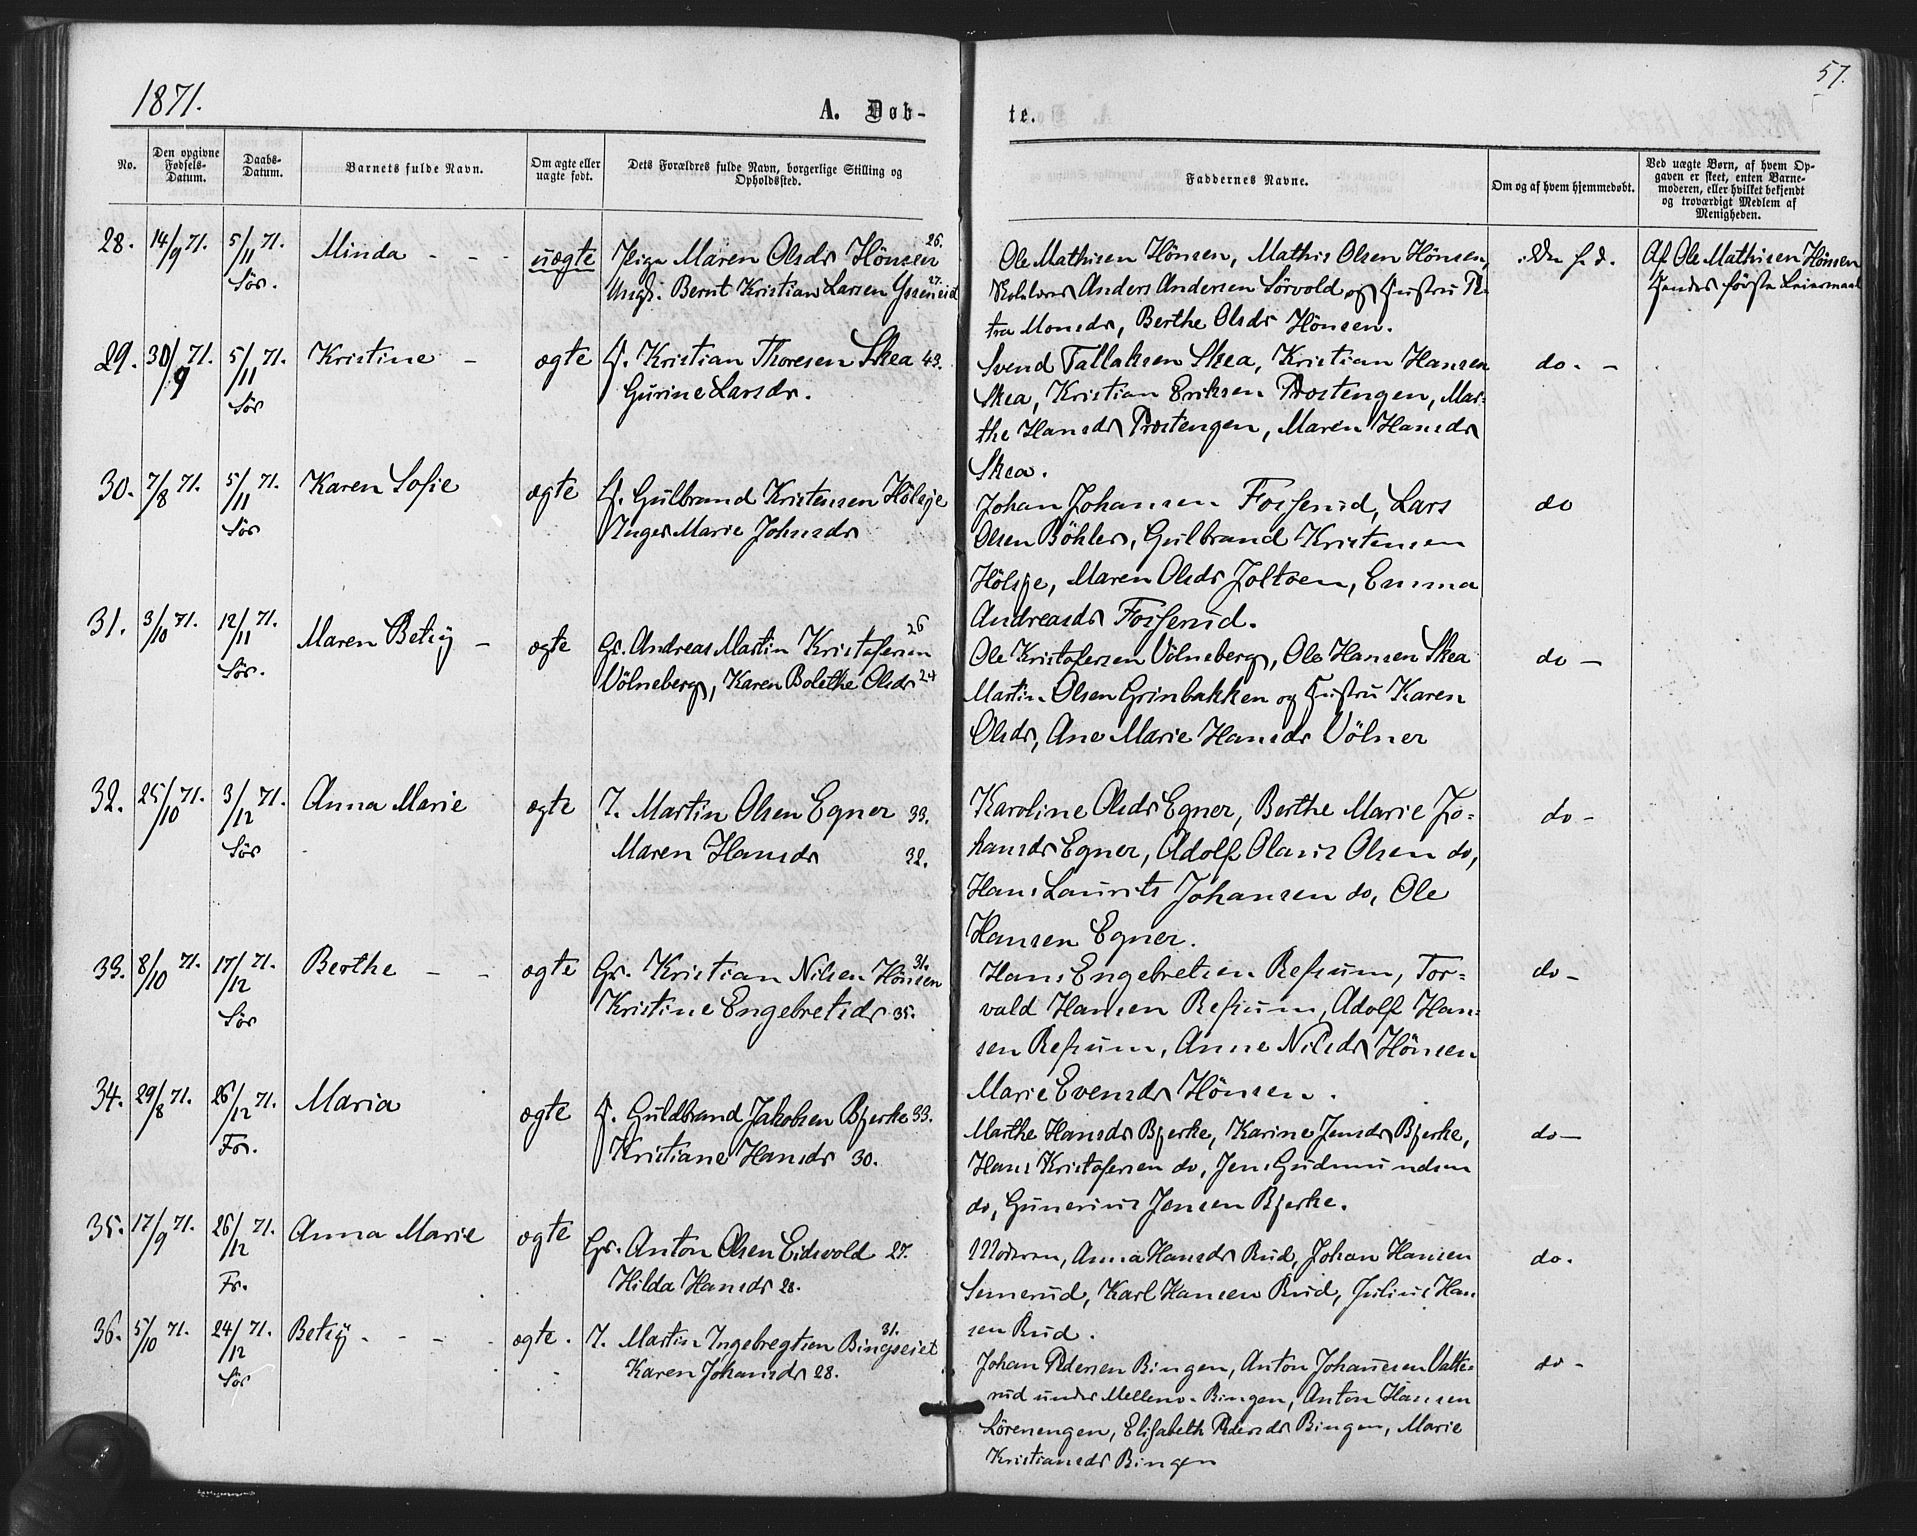 1871.
57.
A. Døb-
te.
No.
Den opgivne
Fødsels-
Datum.
Daabs-
Datum.
Barnets fulde Navn.
Om ægte eller
uægte født.
Dets Forældres fulde Navn, borgerlige Stilling og
Opholdssted.
Faddernes Navne.
Om og af hvem hjemmedøbt.
Ved uægte Børn, af hvem Op-
gaven er skeet, enten Barne-
moderen, eller hvilket bekjendt
og troværdigt Medlem af
Menigheden.
28. 14/9 71. 5/11 71. Sør. Minda - - - uægte
Pige Maren Olsdr Hönsen 26.
Ungk. Bernt Kristian Larsen 27.
Ole Mathisen Hönsen, Mathis Olsen Hönsen,
Anders Andersen Sörvold og Hustru Pe-
tra Monsdr, Berthe Olsdr Hönsen.
Af Ole Mathisen Hönsen
Hendes første Leiermaal
29. 30/9 71. 5/11 71. Sør Kristine - ægte
Kristian Thoresen Skea 43.
Gurine Larsdr.
Svend Tallaksen Skea, Kristian Hansen
Skea, Kristian Eriksen Prostengen, Mar-
the Hansdr Prostengen, Maren Hansdr
Skea.
do. -
30. 7/8 71. 5/11 71. Sør Karen Sofie ægte
Gulbrand Kristensen Hölsje
Inger Marie Johnsdr
Johan Johansen Fosserud, Lars
Olsen Böhler, Gulbrand Kristensen
Hölsje, Maren Olsdr Joltoen, Emma
Andreasdr Fosserud.
do
31. 3/10 71. 12/11 71. Sør. Maren Betsy - ægte
Gr. Andreas Martin Kristofersen 26
Völneberg, Karen Bolethe Olsdr 24
Ole Kristofersen Völneberg, Ole Hansen Skea
Martin Olsen Grinbakken og Hustru Karen
Olsdr, Ane Marie Hansdr Völner
do -
32. 25/10 71. 3/12 71. Sør Anna Marie ægte
I. Martin Olsen Egner 33.
Maren Hansdr 32.
Karoline Olsdr Egner, Berthe Marie Jo-
hansdr Egner, Adolf Olaus Olsen do,
Hans Laurits Johansen do, Ole
Hansen Egner.
do -
33. 8/10 71. 17/12 71. Sør Berthe - - ægte
Gr. Kristian Nilsen Hönsen 31.
Kristine Engebretsdr 35.
Hans Engebretsen Refsum, Tor-
vald Hansen Refsum, Adolf Han-
sen Refsum, Anne Nilsdr Hönsen
Marie Evensdr Hönsen.
do -
34. 29/8 71. 26/12 71. Fr. Maria ægte
Guldbrand Jakobsen Bjerke 33.
Kristiane Hansdr 30.
Marthe Hansdr Bjerke, Karine Jensdr Bjerke,
Hans Kristofersen do, Jens Gudmundsen
do, Gunerius Jensen Bjerke.
do -
35. 17/9 71. 26/12 71. Fr. Anna Marie ægte
Gr. Anton Olsen Eidsvold 27.
Hilda Hansdr 28.
Moderen, Anna Hansdr Rud, Johan Hansen
Semerud, Karl Hansen Rud, Julius Han
sen Rud.
do.
36. 5/10 71. 24/12 71. Sør Betsy - - - - ægte.
I. Martin Ingebregtsen Bingseiet 31.
Karen Johansdr 28.
Johan Pedersen Bingen, Anton Johannesen Valte-
rud under Mellem-Bingen, Anton Hansen
Lörenengen, Elisabeth Pedersdr Bingen, Marie
Kristiansdr Bingen
do -